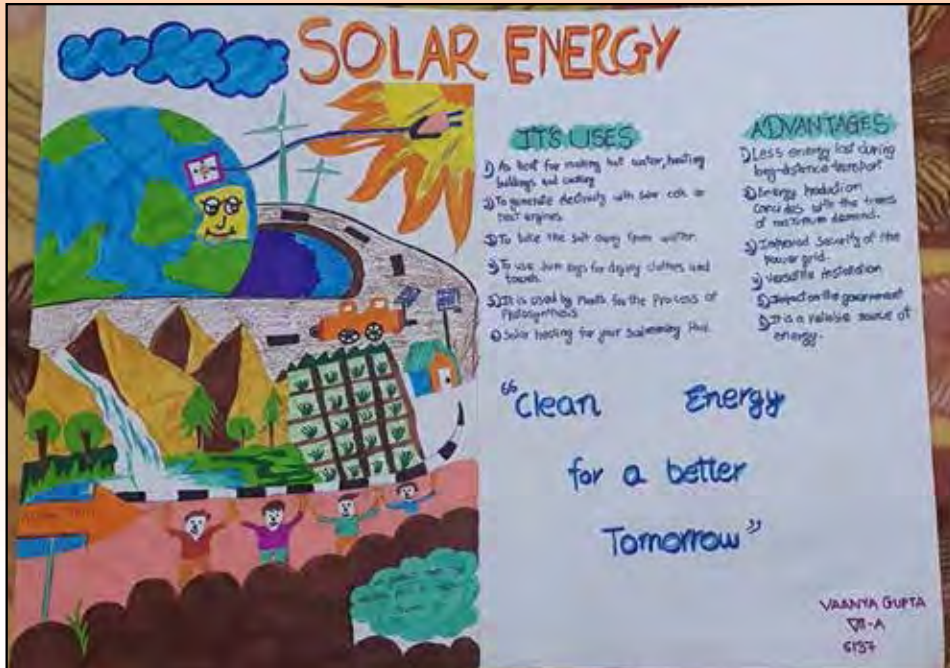 SOLAR ENERGY
IT'S USES
1) As heat for making hot water, heating
buildings and cooking
2) To generate electricity with solar cells or
heat engines
3) To take the salt away from water.
4) To use sun rays for drying clothes and
towels.
5) It is used by plants for the Process of
Photosynthesis
6) Solar heating for your swimming Pool.
ADVANTAGES
1) Less energy lost during
long-distance transport
2) Energy production
coincides with the times
of maximum demand.
3) Improved security of the
power grid.
4) Versatile installation
5) Impact on the government
It is a reliable source of
energy.
"Clean Energy
for a better
Tomorrow"
VAANYA GUPTA
VII-A
6157